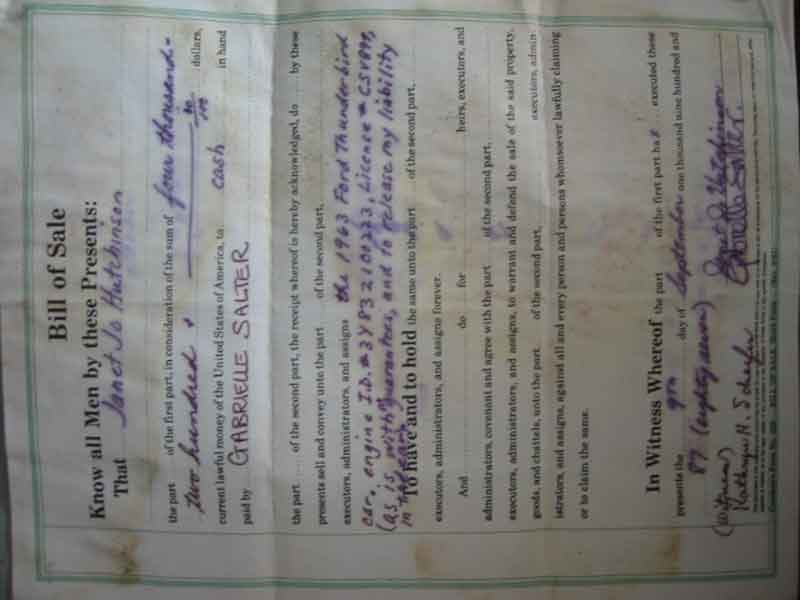 Bill of Sale
Know all Men by these Presents:
That Janet Jo Hutchinson
the part of the first part, in consideration of the sum of four thousand -
two hundred + no/100 dollars,
current lawful money of the United States of America, to cash in hand
paid by GABRIELLE SALTER
the part .... of the second part, the receipt whereof is hereby acknowledged, do .... by these
presents sell and convey unto the part of the second part,
executors, administrators, and assigns the 1963 Ford Thunderbird
car, engine I.D. # 3Y832100223, License # CSV894,
(as is with guarantees, and to release my liability
To have and to hold the same unto the part of the second part,
executors, administrators, and assigns forever.
And do for heirs, executors, and
administrators, covenant and agree with the part of the second part,
executors, administrators, and assigns, to warrant and defend the sale of the said property,
goods, and chattels, unto the part of the second part, executors, admin-
istrators, and assigns, against all and every person and persons whomsoever lawfully claiming
or to claim the same.
In Witness Whereof the part of the first part has executed these
presents the 9th day of September one thousand nine hundred and
87 (eighty seven)
(Witness) Janet Jo Hutchinson
Kathryn H. Schaefer Gabrielle Salter